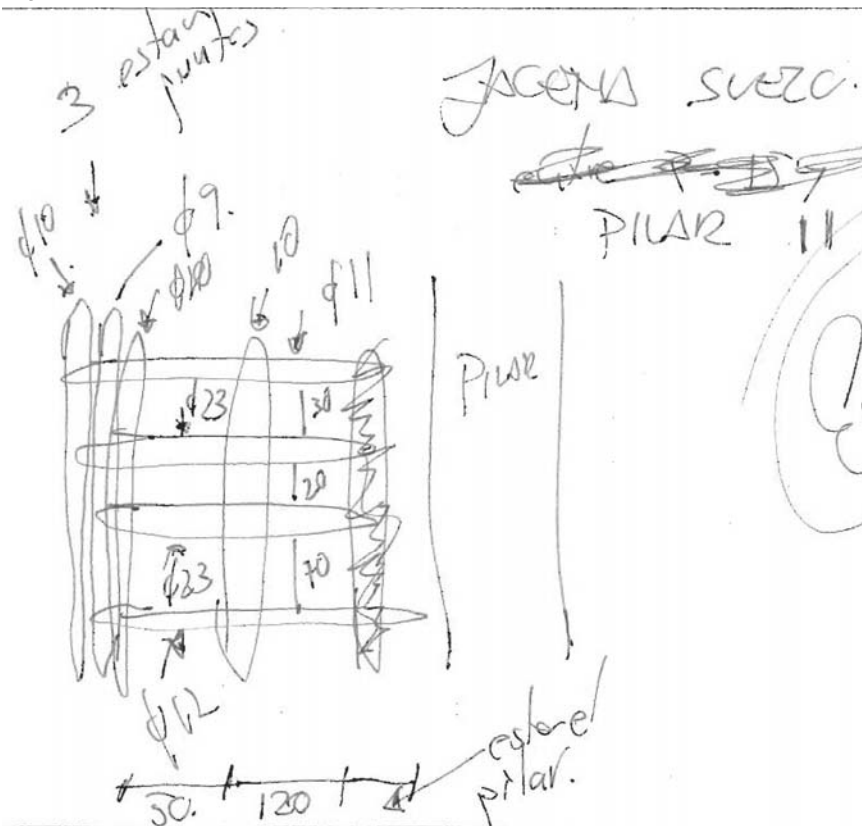 3 estan
juntos
JACENA SUEZO.
PILAR 11
ϕ10
ϕ9.
ϕ10
10
ϕ11
PILAR
ϕ23
30
20
ϕ23
70
ϕ12
50. 120
pilar.